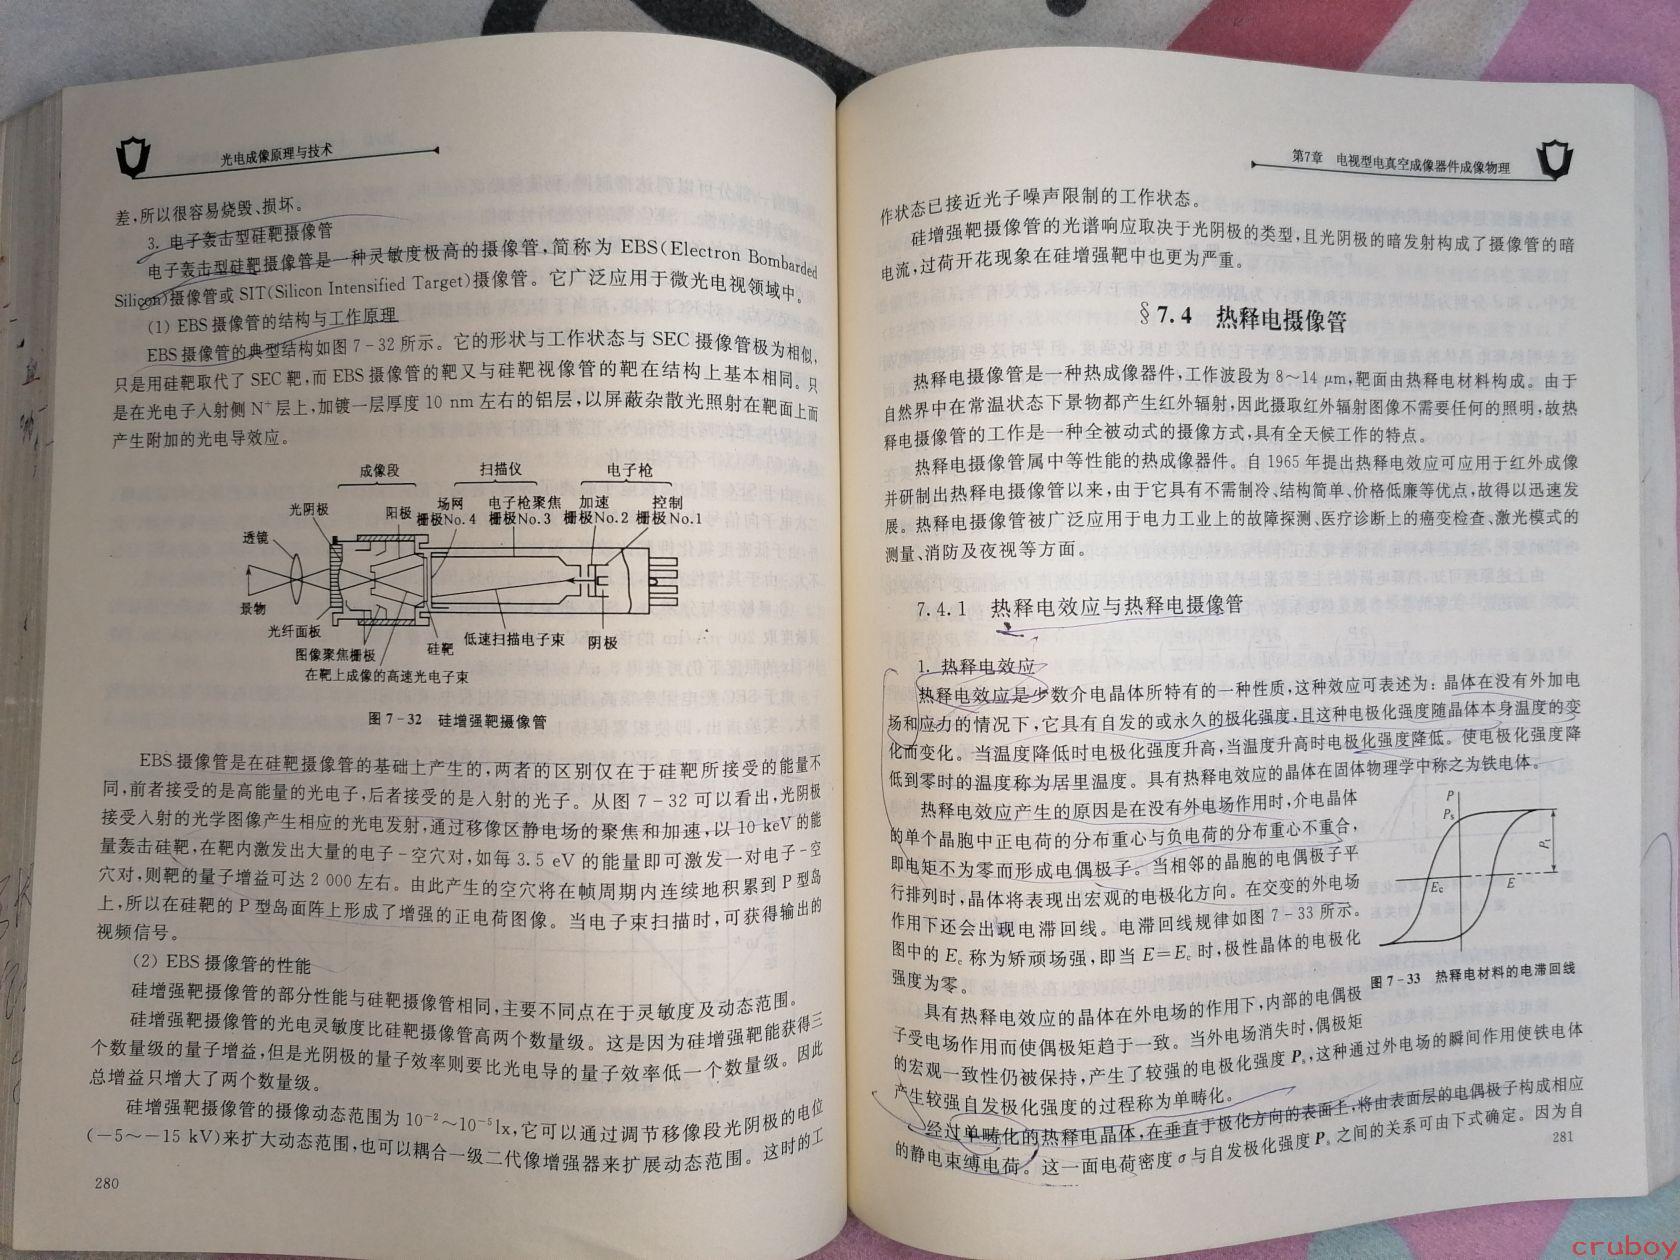 光电成像原理与技术
差,所以很容易烧毁、损坏。
3. 电子轰击型硅靶摄像管
电子轰击型硅靶摄像管是一种灵敏度极高的摄像管,简称为 EBS(Electron Bombarded
Silicon)摄像管或 SIT(Silicon Intensified Target)摄像管。它广泛应用于微光电视领域中。
(1) EBS 摄像管的结构与工作原理
EBS 摄像管的典型结构如图 7-32 所示。它的形状与工作状态与 SEC 摄像管极为相似,
只是用硅靶取代了 SEC 靶,而 EBS 摄像管的靶又与硅靶视像管的靶在结构上基本相同。只
是在光电子入射侧 N⁺ 层上,加镀一层厚度 10 nm 左右的铝层,以屏蔽杂散光照射在靶面上而
产生附加的光电导效应。
成像段 扫描仪 电子枪
光阴极 阳极 场网 电子枪聚焦 加速 控制
栅极No.4 栅极No.3 栅极No.2 栅极No.1
透镜
景物
光纤面板
图像聚焦栅极 硅靶 低速扫描电子束 阴极
在靶上成像的高速光电子束
图 7-32 硅增强靶摄像管
EBS 摄像管是在硅靶摄像管的基础上产生的,两者的区别仅在于硅靶所接受的能量不
同,前者接受的是高能量的光电子,后者接受的是入射的光子。从图 7-32 可以看出,光阴极
接受入射的光学图像产生相应的光电发射,通过移像区静电场的聚焦和加速,以 10 keV 的能
量轰击硅靶,在靶内激发出大量的电子-空穴对,如每 3.5 eV 的能量即可激发一对电子-空
穴对,则靶的量子增益可达 2 000 左右。由此产生的空穴将在帧周期内连续地积累到 P 型岛
上,所以在硅靶的 P 型岛面阵上形成了增强的正电荷图像。当电子束扫描时,可获得输出的
视频信号。
(2) EBS 摄像管的性能
硅增强靶摄像管的部分性能与硅靶摄像管相同,主要不同点在于灵敏度及动态范围。
硅增强靶摄像管的光电灵敏度比硅靶摄像管高两个数量级。这是因为硅增强靶能获得三
个数量级的量子增益,但是光阴极的量子效率则要比光电导的量子效率低一个数量级。因此
总增益只增大了两个数量级。
硅增强靶摄像管的摄像动态范围为 10⁻²～10⁻⁵lx,它可以通过调节移像段光阴极的电位
(－5～－15 kV)来扩大动态范围,也可以耦合一级二代像增强器来扩展动态范围。这时的工
280
第7章 电视型电真空成像器件成像物理
作状态已接近光子噪声限制的工作状态。
硅增强靶摄像管的光谱响应取决于光阴极的类型,且光阴极的暗发射构成了摄像管的暗
电流,过荷开花现象在硅增强靶中也更为严重。
§7.4 热释电摄像管
热释电摄像管是一种热成像器件,工作波段为 8～14 μm,靶面由热释电材料构成。由于
自然界中在常温状态下景物都产生红外辐射,因此摄取红外辐射图像不需要任何的照明,故热
释电摄像管的工作是一种全被动式的摄像方式,具有全天候工作的特点。
热释电摄像管属中等性能的热成像器件。自 1965 年提出热释电效应可应用于红外成像
并研制出热释电摄像管以来,由于它具有不需制冷、结构简单、价格低廉等优点,故得以迅速发
展。热释电摄像管被广泛应用于电力工业上的故障探测、医疗诊断上的癌变检查、激光模式的
测量、消防及夜视等方面。
7.4.1 热释电效应与热释电摄像管
1. 热释电效应
热释电效应是少数介电晶体所特有的一种性质,这种效应可表述为：晶体在没有外加电
场和应力的情况下,它具有自发的或永久的极化强度,且这种电极化强度随晶体本身温度的变
化而变化。当温度降低时电极化强度升高,当温度升高时电极化强度降低。使电极化强度降
低到零时的温度称为居里温度。具有热释电效应的晶体在固体物理学中称之为铁电体。
热释电效应产生的原因是在没有外电场作用时,介电晶体
的单个晶胞中正电荷的分布重心与负电荷的分布重心不重合,
即电矩不为零而形成电偶极子。当相邻的晶胞的电偶极子平
行排列时,晶体将表现出宏观的电极化方向。在交变的外电场
作用下还会出现电滞回线。电滞回线规律如图 7-33 所示。
图中的 Ec 称为矫顽场强,即当 E=Ec 时,极性晶体的电极化
强度为零。
P
Ps
Ps
Ec E
图 7-33 热释电材料的电滞回线
具有热释电效应的晶体在外电场的作用下,内部的电偶极
子受电场作用而使偶极矩趋于一致。当外电场消失时,偶极矩
的宏观一致性仍被保持,产生了较强的电极化强度 Ps,这种通过外电场的瞬间作用使铁电体
产生较强自发极化强度的过程称为单畴化。
经过单畴化的热释电晶体,在垂直于极化方向的表面上,将由表面层的电偶极子构成相应
的静电束缚电荷。这一面电荷密度 σ 与自发极化强度 Ps 之间的关系可由下式确定。因为自
281
cruboy